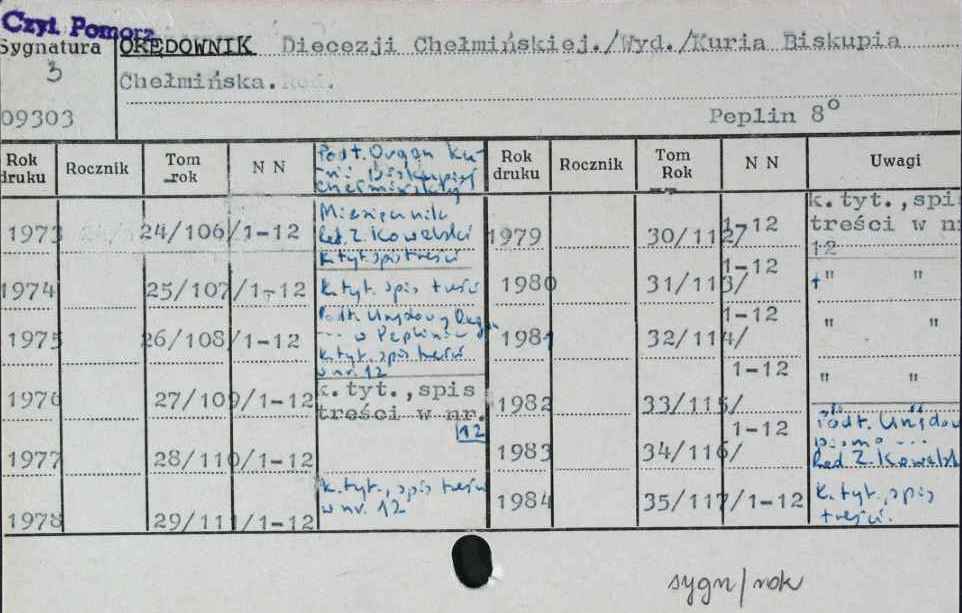 Czyt. Pomorz.
Sygnatura
3
09303
ORĘDOWNIK Diecezji Chełmińskiej./Wyd./Kuria Biskupia
Chełmińska. Red.
Peplin 8°
Rok druku Rocznik Tom rok N N
Podt. Organ Ku-
rii Biskupiej
Chełmińskiej
Rok druku Rocznik Tom Rok N N Uwagi
1973 24/106/1-12
Miesięcznik
Red. Z. Kowalski
K. tyt. spis treści
1974 25/107/1-12 K. tyt. spis treści
1975 26/108/1-12
Podt. Urzędowy Organ
--- w Peplinie
k. tyt. spis treści
w nr. 12
1976 27/109/1-12
k.tyt.,spis
treści w nr.
12
1977 28/110/1-12
1978 29/111/1-12
k. tyt., spis treści
w nr. 12
1979 30/112/ 1-12
k.tyt.,spis
treści w nr
12
1980 31/113/ 1-12 " "
1981 32/114/ 1-12 " "
1982 33/115/ 1-12 " "
1983 34/116/ 1-12
Podt. Urzędow
pismo ---
Red. Z. Kowalski
1984 35/117/1-12
K. tyt., spis
treści.
sygn/rok